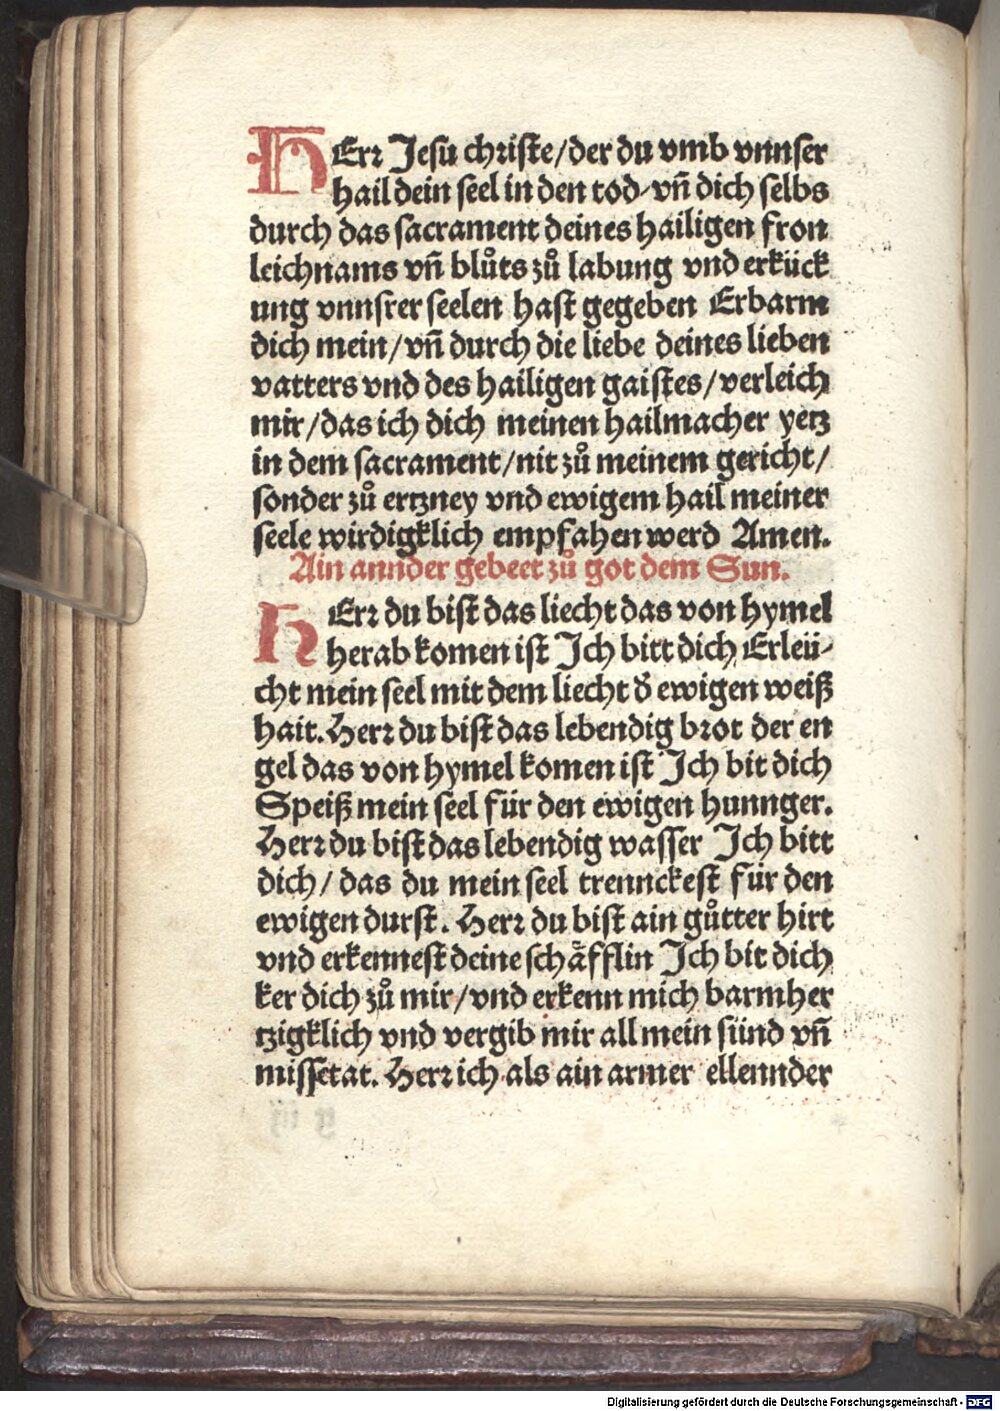 HErr Jesu christe/der du vmb vnnser
hail dein seel in den tod/vn̄ dich selbs
durch das sacrament deines hailigen fron
leichnams vn̄ blůts zů labung vnd erkück
ung vnnsrer seelen hast gegeben Erbarm
dich mein/vn̄ durch die liebe deines lieben
vatters vnd des hailigen gaistes/verleich
mir/das ich dich meinen hailmacher yetz
in dem sacrament/nit zů meinem gericht/
sonder zů ertzney vnd ewigem hail meiner
seele wirdigklich empfahen werd Amen.
Ain annder gebeet zů got dem Sun.
HErr du bist das liecht das von hymel
herab komen ist Ich bitt dich Erleü/
cht mein seel mit dem liecht d̕ ewigen weiß
hait. Herr du bist das lebendig brot der en
gel das von hymel komen ist Ich bit dich
Speiß mein seel für den ewigen hunnger.
Herr du bist das lebendig wasser Ich bitt
dich/ das du mein seel trennckest für den
ewigen durst. Herr du bist ain gůtter hirt
vnd erkennest deine schäfflin Ich bit dich
ker dich zů mir/vnd erkenn mich barmher
tzigklich vnd vergib mir all mein sünd vn̄
missetat. Herr ich als ain armer ellennder
Digitalisierung gefördert durch die Deutsche Forschungsgemeinschaft - DFG